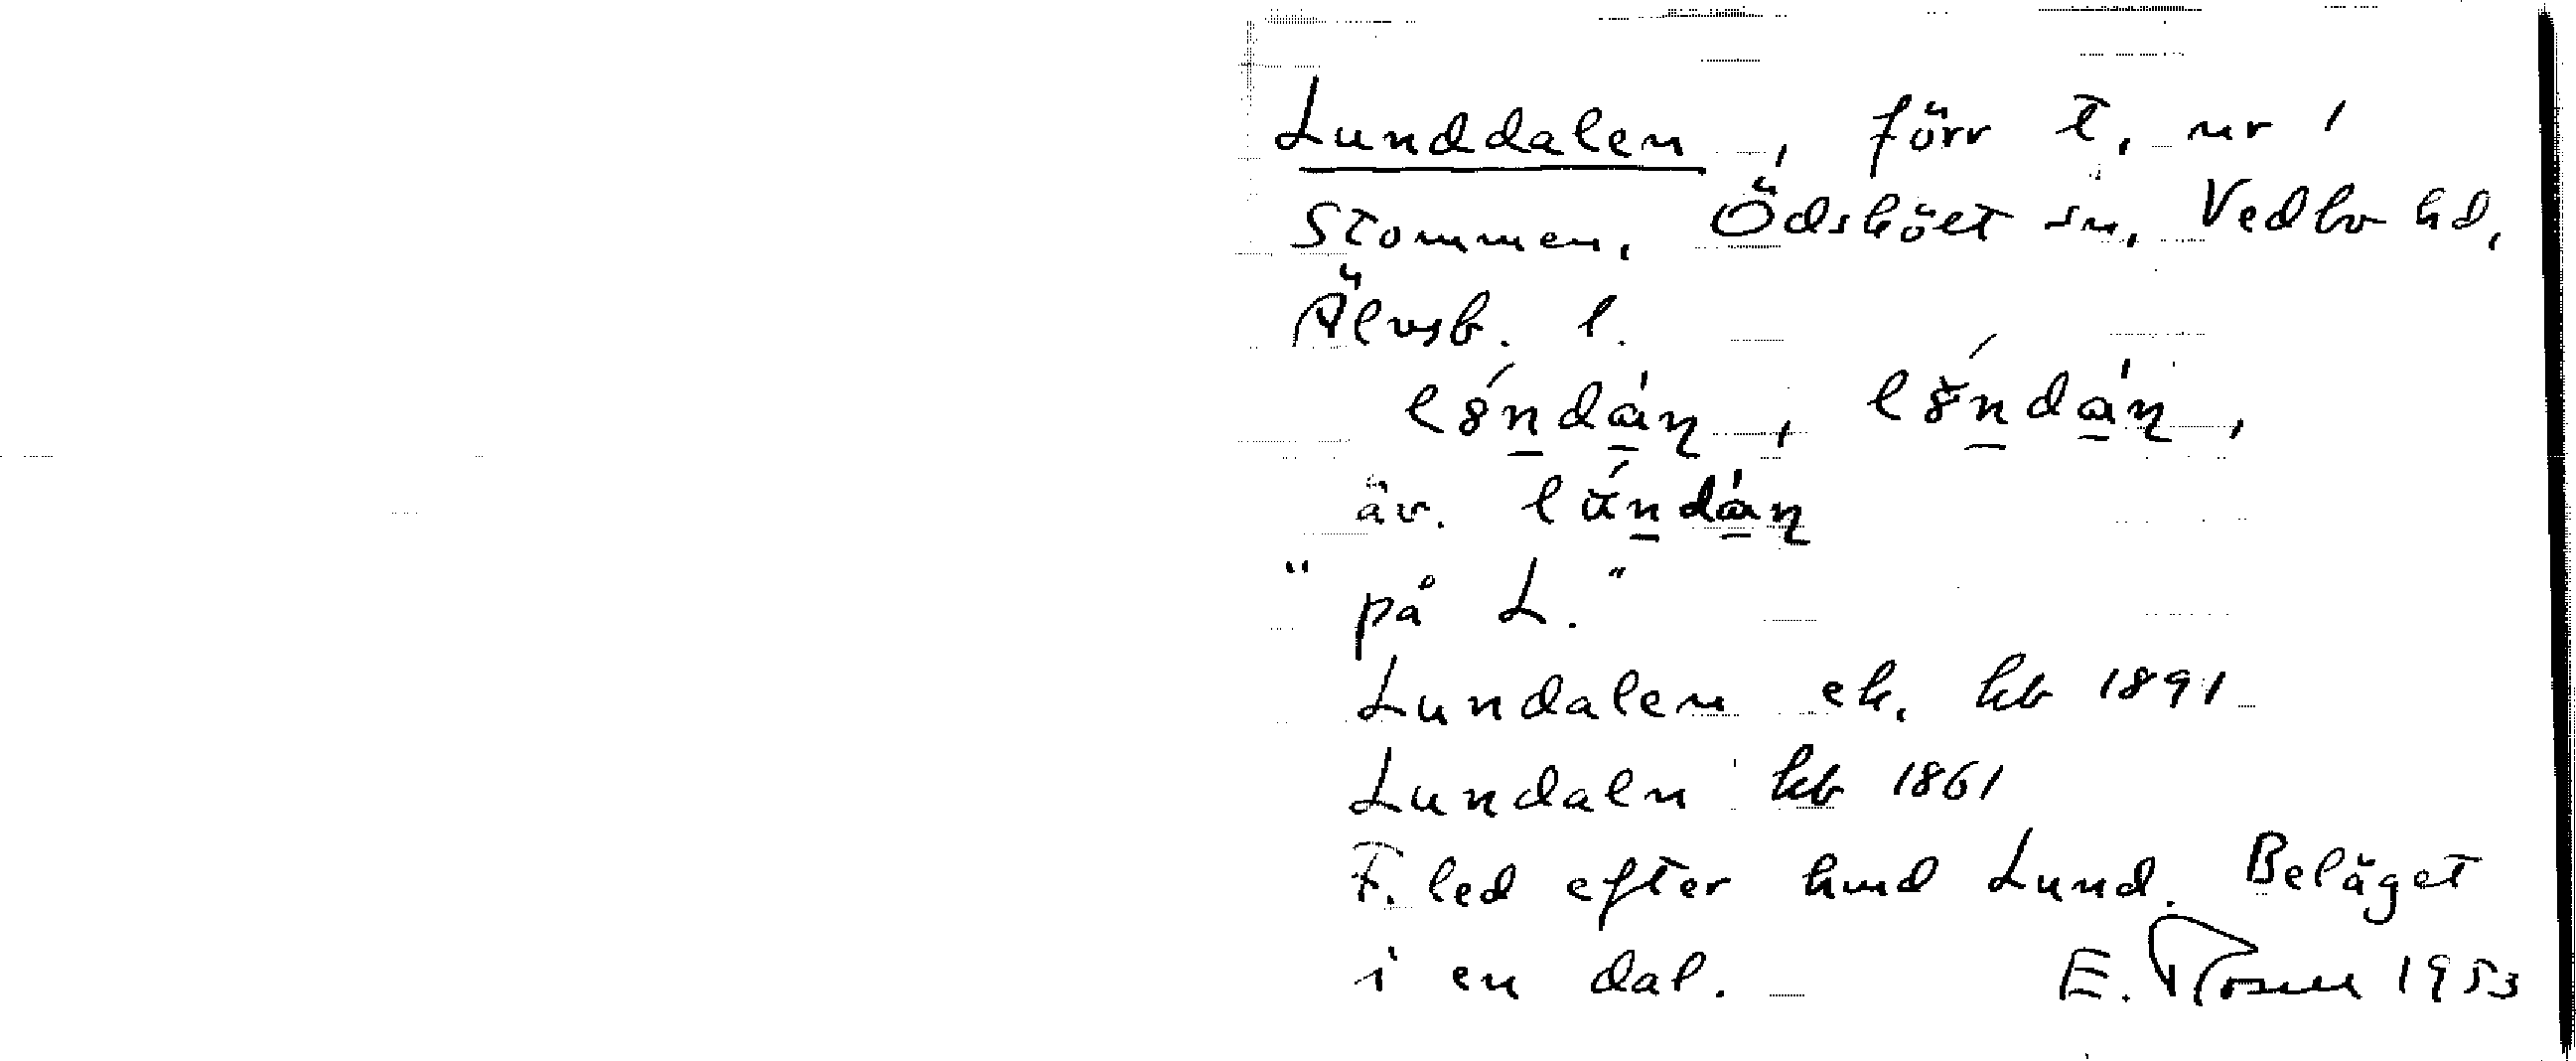 Lunddalen, förr t, nr 1
Stommen, Ödsköet sn, Vedbo hd,
Älvsb. l.
äv.
"på L."
Lundalen ek. kb 1891
Lundaln kb 1861
F. led efter hmd Lund. Beläget
i en dal. E. Rosell 1953